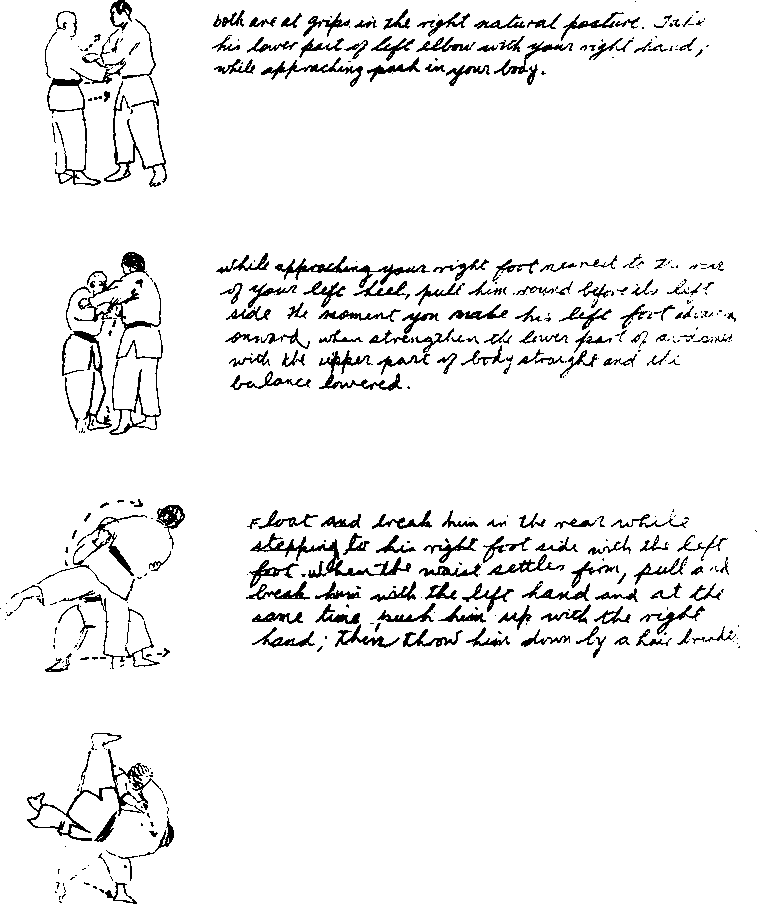 both are at grips in the right natural posture. Take
his lower part of left elbow with your right hand,
while approaching push in your body.
while approaching your right foot nearest to the rear
of your left heel, pull him round before its left
side the moment you make his left foot
onward, when strengthen the lower part of
with the upper part of body straight and the
balance lowered.
Float and break him in the rear while
stepping to his right foot side with the left
foot. When the waist settles firm, pull and
break him with the left hand and at the
same time push him up with the right
hand; then throw him down by a hair